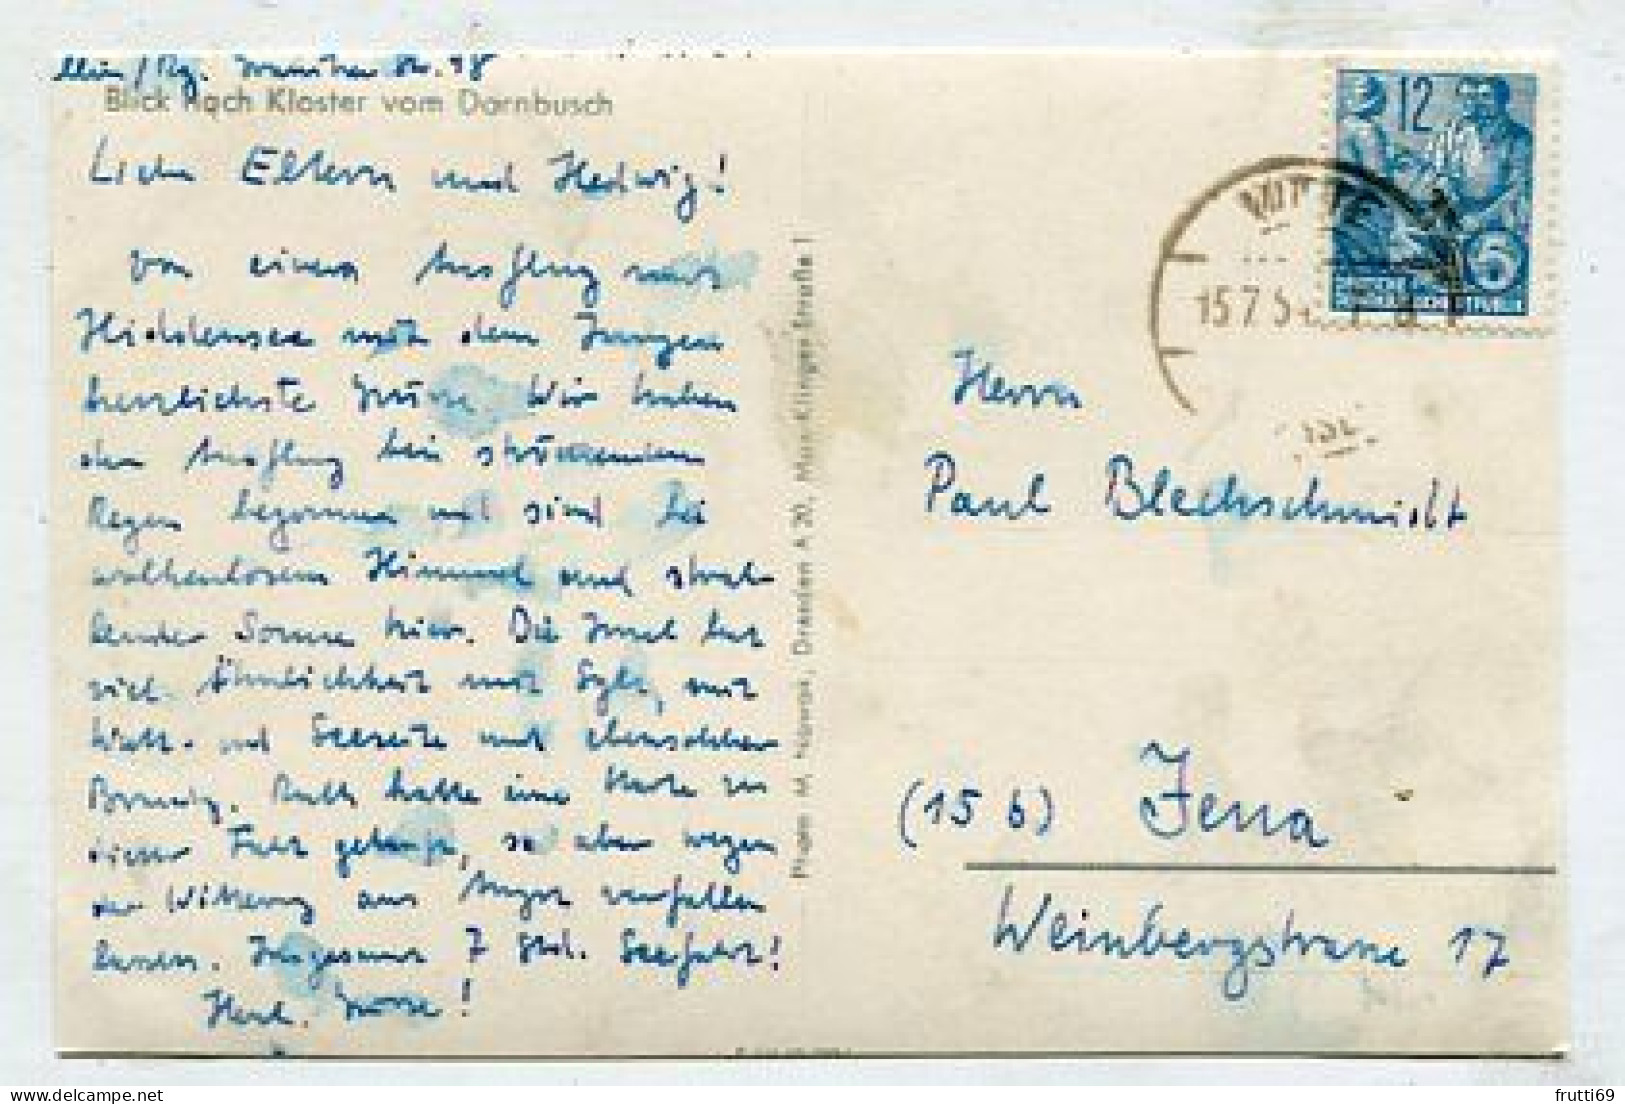 Blick nach Kloster vom Dornbusch
Liebe Eltern und Hedwig!
Von einem Ausflug nach
Hiddensee mit dem Jungen
herzlichste Grüsse. Wir haben
den Ausflug bei strömendem
Regen begonnen und sind bei
wolkenlosem Himmel und strah-
lender Sonne hier. Die Insel hat
viel Ähnlichkeit mit Sylt, mit
Watt- und Seeseite und ebensolcher
Brandung. Ruth hatte eine Karte zu
dieser Fahrt gekauft, sie aber wegen
der Witterung aus Angst verfallen
lassen. Insgesamt 7 Std. Seefahrt!
Herzl. Grüsse!
Photo M. Nowak, Dresden A 20, Max-Klinger-Straße 1
12
5
15.7.5
Herrn
Paul Blechschmidt
(15 b) Jena
Weinbergstrasse 17
frutti69